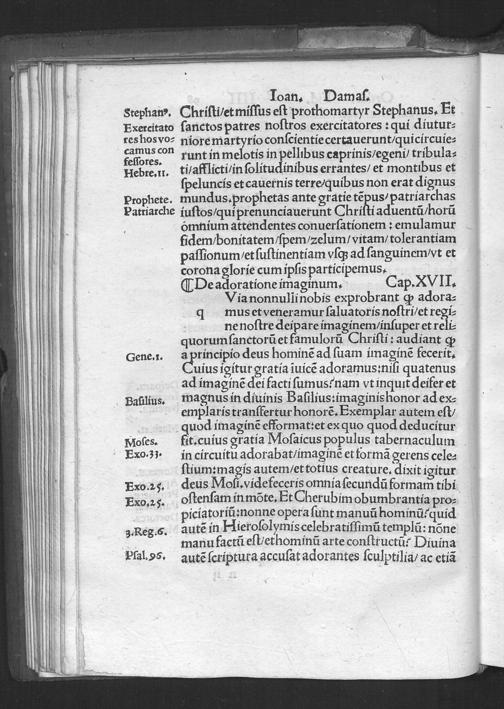 Ioan. Damas.
Stephanꝰ. Christi/et missus est prothomartyr Stephanus. Et
Exercitato sanctos patres nostros exercitatores : qui diutur⸗
res hos vo⸗ niore martyrio conscientie certauerunt/qui circuie⸗
camus con runt in melotis in pellibus caprinis/egeni/ tribula⸗
fessores.
Hebre.11. ti/afflicti/in solitudinibus errantes/ et montibus et
speluncis et cauernis terre/quibus non erat dignus
Prophete. mundus.prophetas ante gratie tẽpus/patriarchas
Patriarche iustos/qui prenunciauerunt Christi aduentũ/horũ
omnium attendentes conuersationem : emulamur
fidem/bonitatem/spem/zelum/vitam/tolerantiam
passionum/et sustinentiam vsqꝫ ad sanguinem/vt et
corona glorie cum ipsis participemus.
⸿De adoratione imaginum. Cap.XVII.
q Via nonnulli nobis exprobrant ꝙ adora⸗
mus et veneramur saluatoris nostri/et regi⸗
ne nostre deipare imaginem/insuper et reli⸗
quorum sanctorũ et famulorũ Christi : audiant ꝙ
Gene.1. a principio deus hominẽ ad suam imaginẽ fecerit.
Cuius igitur gratia iuicẽ adoramus:nisi quatenus
ad imaginẽ dei facti sumus? nam vt inquit deifer et
Basilius. magnus in diuinis Basilius:imaginis honor ad ex⸗
emplaris transfertur honorẽ. Exemplar autem est/
quod imaginẽ efformat:et ex quo quod deducitur
Moses. fit.cuius gratia Mosaicus populus tabernaculum
Exo.33. in circuitu adorabat/imaginẽ et formã gerens cele⸗
stium:magis autem/et totius creature. dixit igitur
Exo.25. deus Mosi.vide feceris omnia secundũ formam tibi
Exo.25. ostensam in mõte. Et Cherubim obumbrantia pro⸗
piciatoriũ:nonne opera sunt manuũ hominũ? quid
3.Reg.6. autẽ in Hierosolymis celebratissimũ templũ: nõne
manu factũ est/et hominũ arte constructũ? Diuina
Psal.96. autẽ scriptura accusat adorantes sculptilia/ ac etiã